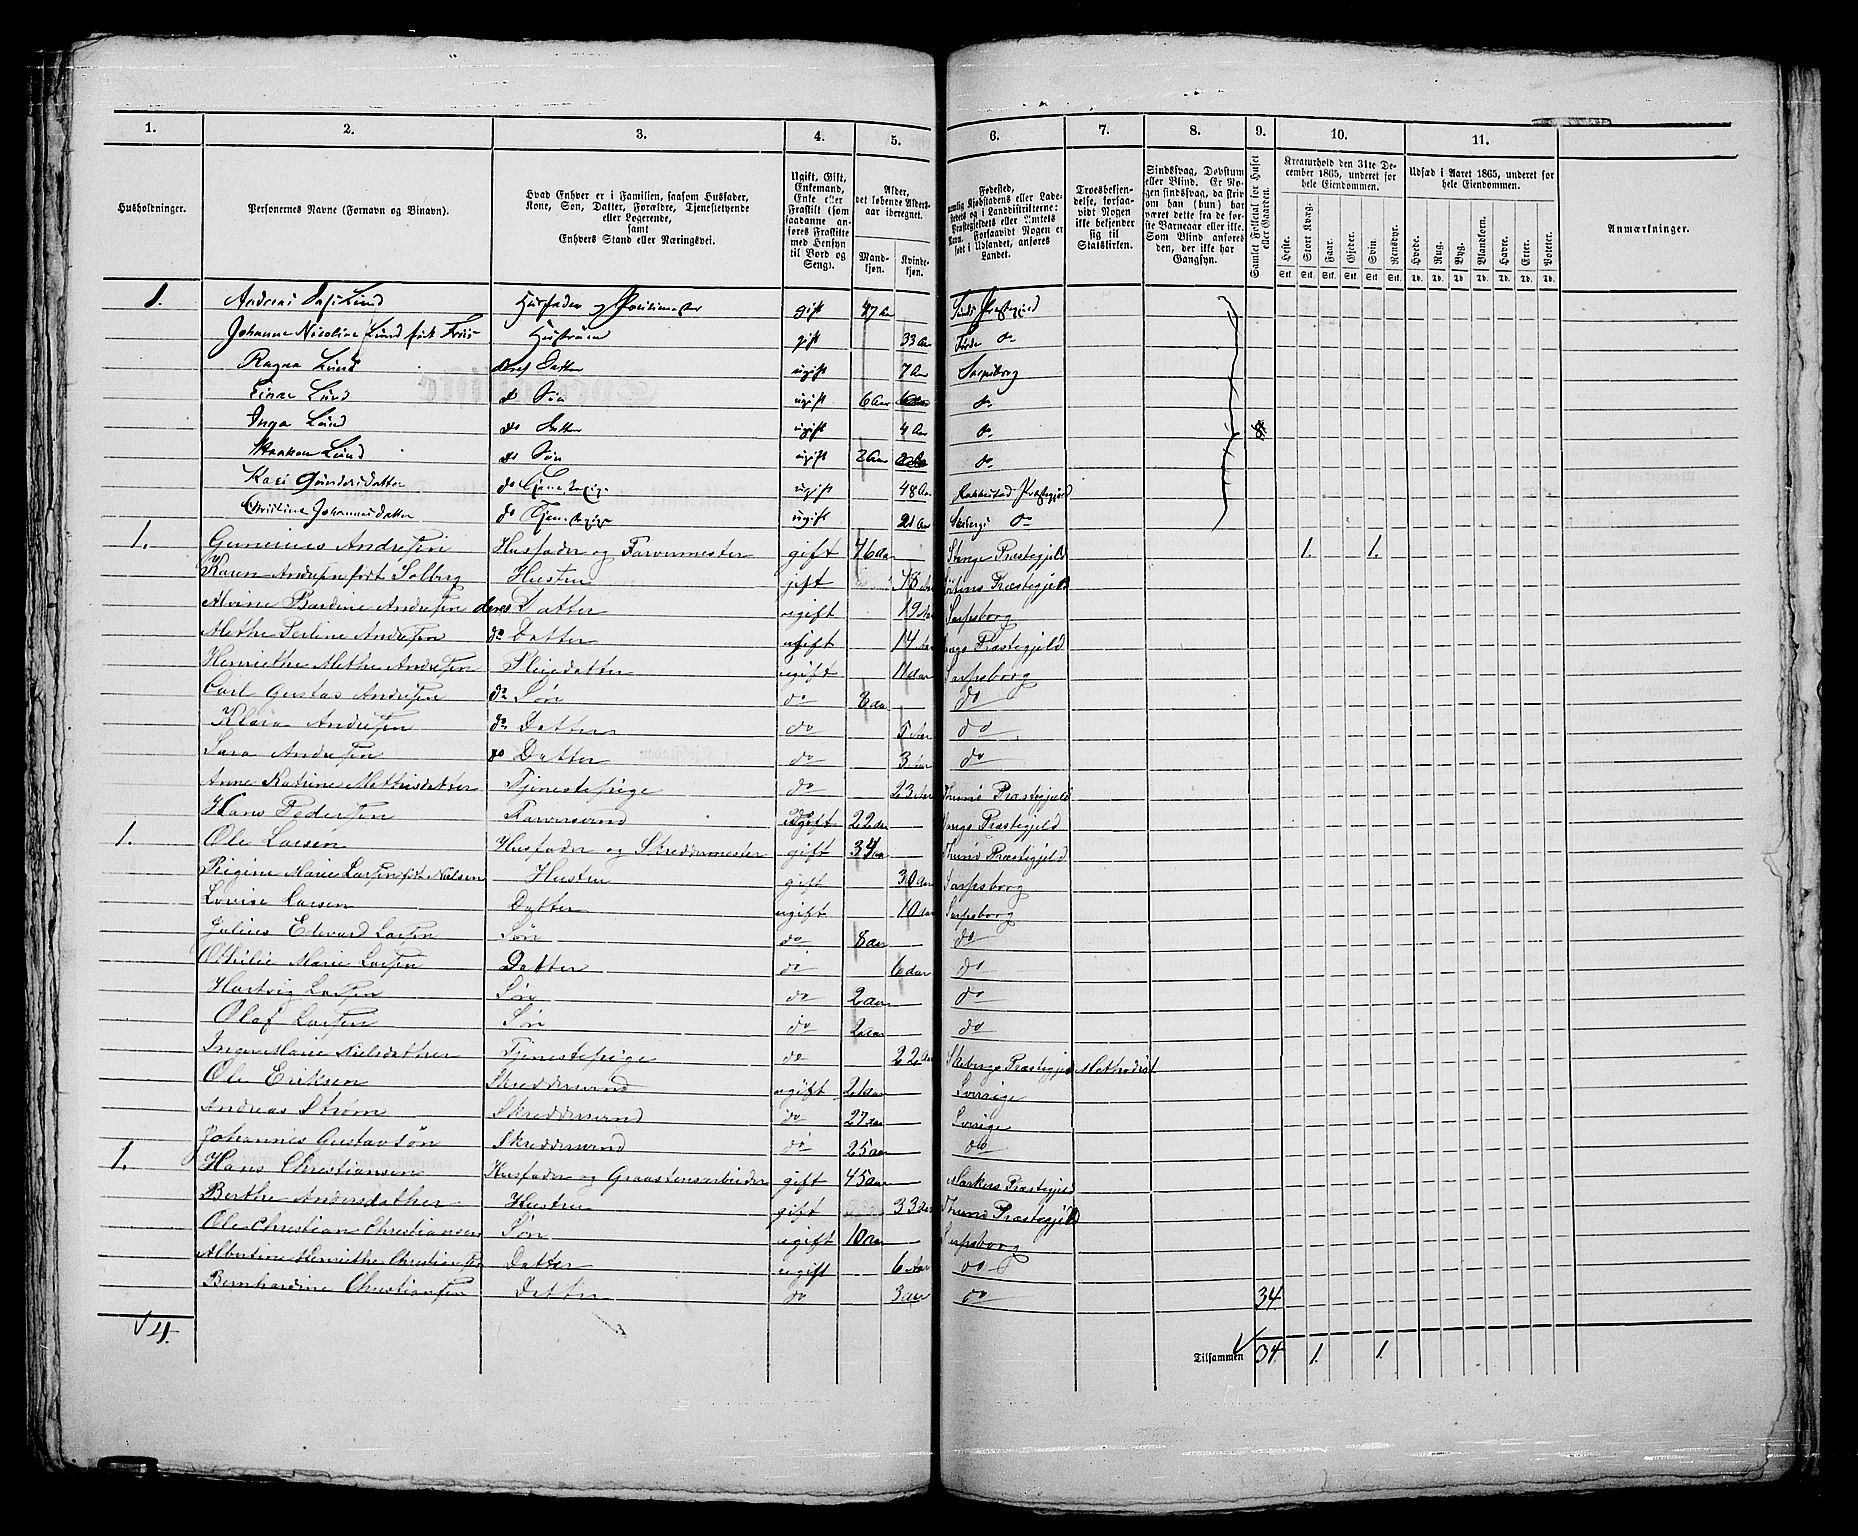 1. 2. 3. 4. 5. 6. 7. 8. 9. 10. 11.
Husholdninger.
Personernes Navne (Fornavn og Binavn).
Hvad Enhver er i Familien, saasom Husfader, Kone, Søn, Datter, Forældre, Tjenestetyende eller Logerende, samt Enhvers Stand eller Næringsvei.
Ugift, Gift, Enkemand, Enke eller Fraskilt (som saadanne anføres Fraskilte med Hensyn til Bord og Seng).
Alder, det løbende Alders-aar iberegnet.
Mandkjøn. Kvindekjøn.
Fødested, nemlig Kjøbstadens eller Ladestedets og i Landdistrikterne: Præstegjeldets eller Amtets Navn. Forsaavidt Nogen er født i Udlandet, anføres Landet.
Troesbekjendelse, forsaavidt Nogen ikke bekjender sig til Statskirken.
Sindssvag, Døvstum eller Blind. Er Nogen sindssvag, da skrives om han (hun) har været dette fra de første Barneaar eller ikke. Som Blind anføres den, der ikke har Gangsyn.
Samlet Folketal for Huset eller Gaarden.
Kreaturhold den 31te December 1865, underet for hele Eiendommen.
Heste. Stort Kvæg. Faar. Gjeder. Svin. Rensdyr.
Udsæd i Aaret 1865, underet for hele Eiendommen.
Hvede. Rug. Byg. Blandkorn. Havre. Erter. Poteter.
Anmærkninger.
Stk. Stk. Stk. Stk. Stk. Stk. Td. Td. Td. Td. Td. Td. Td.
1. Andreas Lund Husfader og gift 47 Aar Præstegjeld
Johanne Nicoline Lund født Friis Hustruen gift 33 Aar Førde do
Ragna Lund deres Datter ugift 7 Aar Sarpsborg
Einar Lund do Søn ugift 6 Aar do
Inga Lund do Datter ugift 4 Aar do 8
Haakon Lund do Søn ugift 2 Aar do
Kari Gundersdatter do Tjenestepige ugift 48 Aar Rakkestad Præstegjeld
Christine Johannesdatter do Tjenestepige ugift 21 Aar Skebergs do
1. Gunerius Andresen Husfader og Farvermester gift 46 aar Stange Præstegjeld 1. 1.
Karen Andresen født Solberg Hustru gift aar Præstegjeld
Alvine Bardine Andresen deres Datter ugift 19 aar Sarpsborg
Methe Perline Andresen do Datter ugift 14 aar Præstegjeld
Henriethe Methe Andresen Pleiedatter ugift 11 aar Sarpsborg
Carl Gustav Andresen do Søn do 8 aar do
Klara Andresen do Datter do 5 Aar do
Sara Andresen do Datter do 3 aar do
Anne Katrine Mathisdatter Tjenestepige do 23 Aar Thunø Præstegjeld
Hans Pedersen Farversvend ugift 22 aar Præstegjeld
1. Ole Larsen Husfader og Skreddermester gift 34 aar Thunø Præstegjeld
Rigine Marie Larsen født Nielsen Hustru gift 30 aar Sarpsborg
Lovise Larsen Datter ugift 10 aar Sarpsborg
Julius Edevard Larsen Søn do 8 aar do
Othilie Marie Larsen Datter do 6 aar do
Hartvig Larsen Søn do 2 aar do
Olaf Larsen Søn do 2 aar do
Inger Marie Nielsdatter Tjenestepige do 22 aar Skebergs Præstegjeld Methodist
Ole Eriksen Skreddersvend ugift 26 aar Sverige
Andreas Strøm Skreddersvend do 27 aar Sverige
Johannes Gustavsøn Skreddersvend do 25 aar do
1. Hans Christiansen Husfader og Graastensarbeider gift 45 aar Markers Præstegjeld
Berthe Andersdatter Hustru gift 33 aar Thunø Præstegjeld
Ole Christian Christiansen Søn ugift 10 aar Sarpsborg
Albertine Henriethe Christiansen Datter ugift 6 Aar do
Bernhardine Christiansen do 3 aar do 34
4. Tilsammen 34 1. 1.